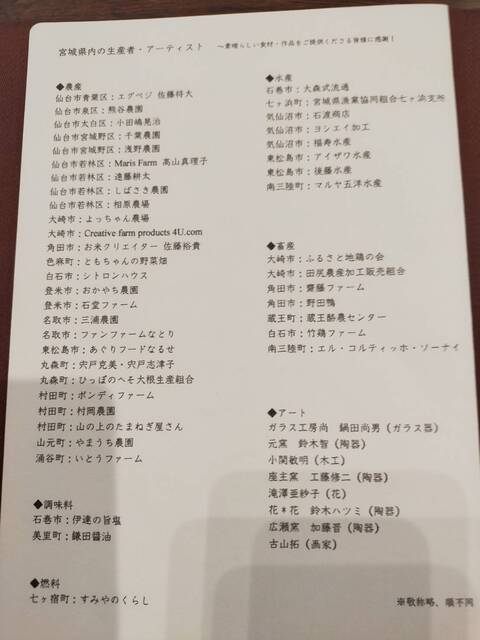 宮城県内の生産者・アーティスト　～素晴らしい食材・作品をご提供くださる皆様に感謝!
◆農産
仙台市青葉区：エグベジ 佐藤将大
仙台市泉区：熊谷農園
仙台市太白区：小田嶋晃治
仙台市宮城野区：千葉農園
仙台市宮城野区：浅野農園
仙台市若林区：Maris Farm 高山真理子
仙台市若林区：遠藤耕太
仙台市若林区：しばさき農園
仙台市若林区：相原農場
大崎市：よっちゃん農場
大崎市：Creative farm products 4U.com
角田市：お米クリエイター 佐藤裕貴
色麻町：ともちゃんの野菜畑
白石市：シトロンハウス
登米市：おかやち農園
登米市：石堂ファーム
名取市：三浦農園
名取市：ファンファームなとり
東松島市：あぐりフードなるせ
丸森町：宍戸克美・宍戸志津子
丸森町：ひっぽのへそ大根生産組合
村田町：ボンディファーム
村田町：村岡農園
村田町：山の上のたまねぎ屋さん
山元町：やまうち農園
涌谷町：いとうファーム
◆調味料
石巻市：伊達の旨塩
美里町：鎌田醤油
◆燃料
七ヶ宿町：すみやのくらし
◆水産
石巻市：大森式流通
七ヶ浜町：宮城県漁業協同組合七ヶ浜支所
気仙沼市：石渡商店
気仙沼市：ヨシエイ加工
気仙沼市：福寿水産
東松島市：アイザワ水産
東松島市：後藤水産
南三陸町：マルヤ五洋水産
◆畜産
大崎市：ふるさと地鶏の会
大崎市：田尻農産加工販売組合
角田市：齋藤ファーム
角田市：野田鴨
蔵王町：蔵王酪農センター
白石市：竹鶏ファーム
南三陸町：エル・コルティッホ・ソーナイ
◆アート
ガラス工房尚　鍋田尚男（ガラス器）
元窯　鈴木智（陶器）
小関敏明（木工）
座主窯　工藤修二（陶器）
滝澤亜紗子（花）
花＊花　鈴木ハツミ（陶器）
広瀬窯　加藤晋（陶器）
古山拓（画家）
※敬称略、順不同